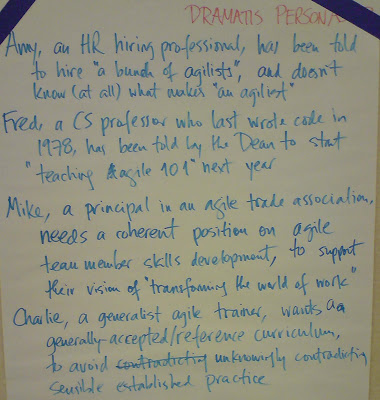 DRAMATIS PERSONAE
Amy, an HR hiring professional, has been told
to hire "a bunch of agilists", and doesn't
know (at all) what makes "an agilist"
Fred, a CS professor who last wrote code in
1978, has been told by the Dean to start
"teaching Agile 101" next year
Mike, a principal in an agile trade association,
needs a coherent position on agile
team member skills development, to support
their vision of "transforming the world of work"
Charlie, a generalist agile trainer, wants a
generally-accepted/reference curriculum,
to avoid contradicting unknowingly contradicting
sensible established practice